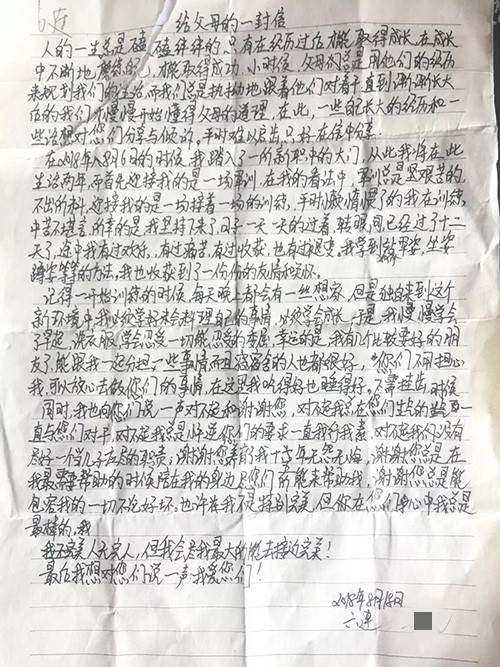 给父母的一封信
人的一生总是磕磕碰碰的,只有在经历过后才能取得成长,在成长
中不断地磨练自己,才能取得成功,小时候,父母总是用他们的经历
来规划我们的生活,而我们总是执拗地跟着他们对着干直到渐渐长大
后的我们才慢慢开始懂得父母的道理,在此,一些自己长大的经历和一
些话想对您们分享与倾诉。平时难以启齿,只好在信中分享。
在2018年8月6日的时候,我踏入了一所新职中的大门,从此我将在此
生活两年,而首先迎接我的是一场军训,在我的看法中,军训总是艰苦的,
不出所料,迎接我的是一场接着一场的训练,平时懒惰惯了的我在训练
中苦不堪言,所幸的是我坚持下来了,日子一天一天的过着,转眼间已经过了十二
天了,途中我有过欢乐,有过痛苦,有过收获,也有过退变,我学到站军姿,坐姿
蹲姿等等的方法,我也收获到了一份份的友情和关怀。
记得一开始训练的时候,每天晚上都会有一些想家,但是独自来到这个
新环境中我必须学好来料理自己的事情,必须学会成长,于是,我慢慢学会
了早起,洗衣服,学会忍受一切能忍受的委屈,幸运的是,我有几个比较要好的朋
友,能跟我一起分担一些事情而且宿舍的人也都很好,您们不用担心
我,可以放心去做您们的事情,在这里我吃得好也睡得好,不需挂齿,时候
同时,我也向您们说一声对不起和谢谢您,对不起我在您们生气的
一直与您们对干,对不起我总是忤逆您们的要求一直我行我素,对不起我们没有
尽好一个当儿子应尽的职责,谢谢您养育我十5年无怨无悔,谢谢您总是在
我最需要帮助的时候陪在我的身边尽您们所能来帮助我,谢谢您总是能
包容我的一切不论好坏。也许在我不是特别完美,但你在您们的心中我总是
最棒的,我
我不完美人无完人,但我会尽我最大的能去接近完美!
最后我想对您们说一声我爱您们!
2018年8月18日
六连